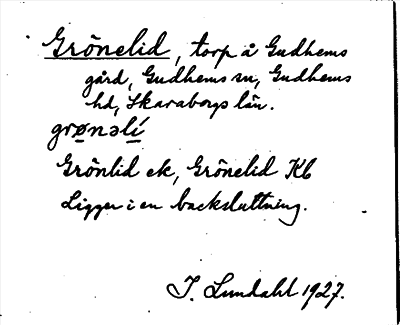 Grönelid, torp å Gudhems
gård, Gudhems sn, Gudhems
hd, Skaraborgs län.
grønəlí
Grönlid ek, Grönelid Kb
Ligger i en backsluttning.
I. Lundahl 1927.